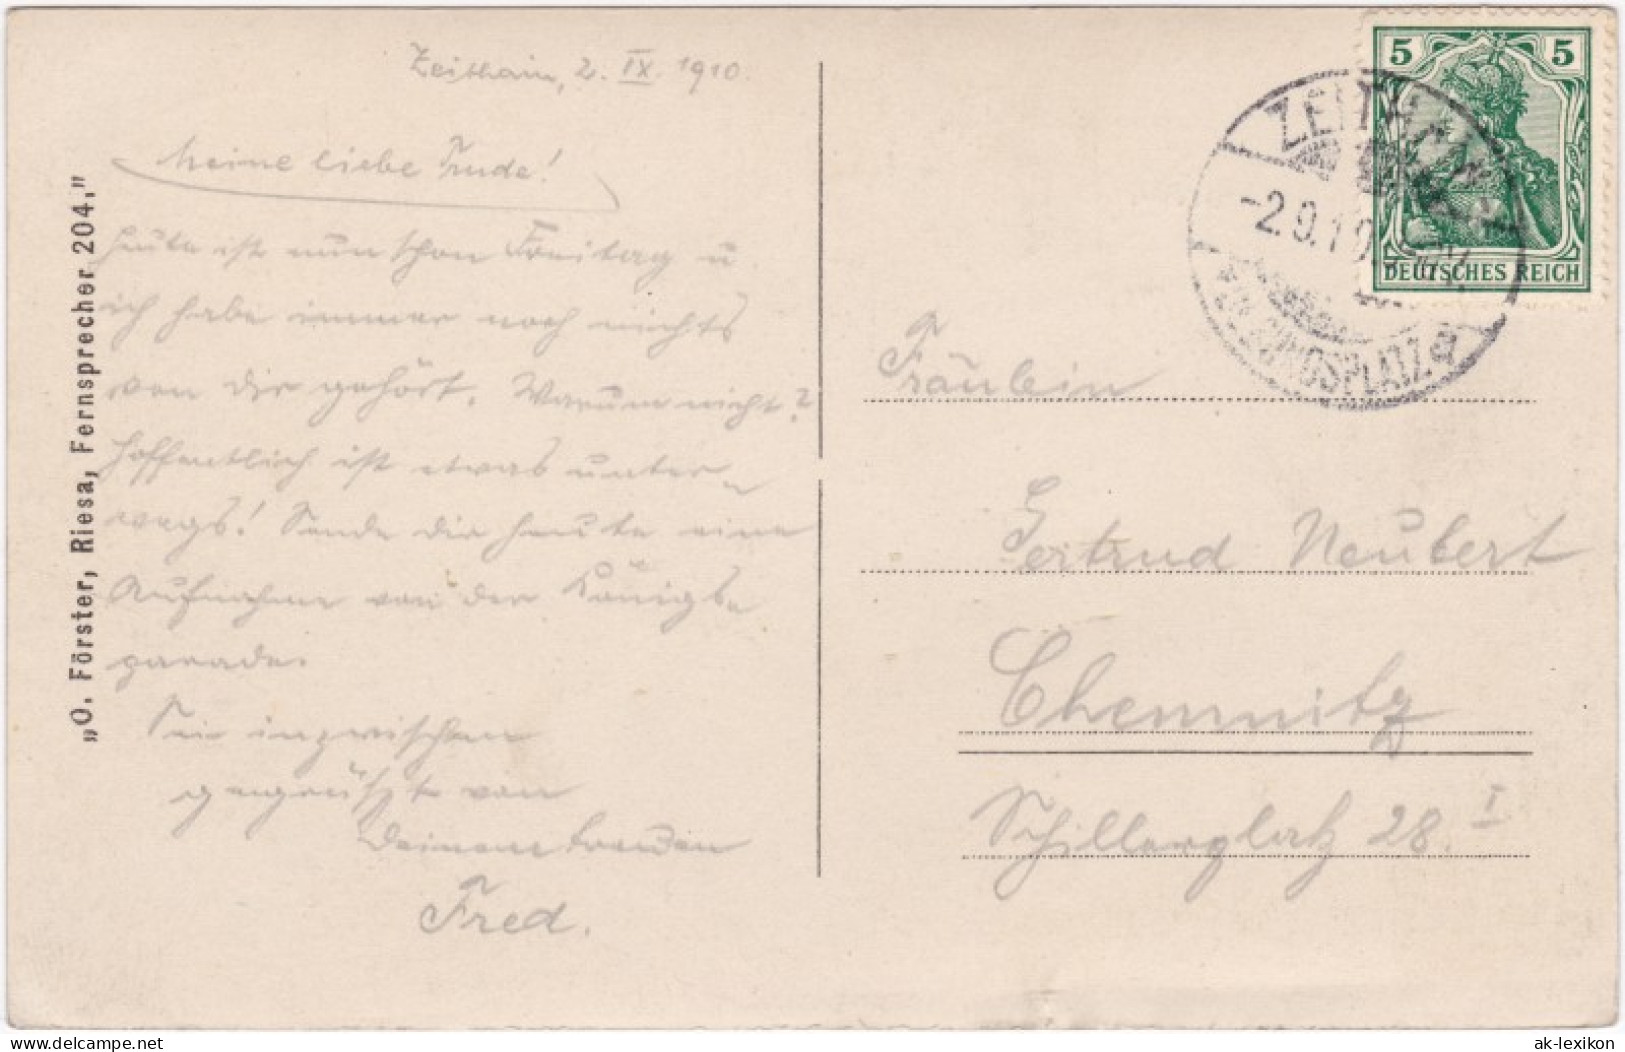 Zeithain, 2. IX. 1910.
Meine liebe Trude!
Heute ist nun schon Freitag u.
ich habe immer noch nichts
von dir gehört. Warum nicht?
Hoffentlich ist etwas unter-
wegs! Sende dir heute eine
Aufnahme von der Königs-
parade.
Sei inzwischen
gegrüßt von
Deinem treuen
Fred.
„O. Förster, Riesa, Fernsprecher 204."
5 5
DEUTSCHES REICH
ZEITHAIN
-2.9.10.
ÜBUNGSPLATZ
Fräulein
Gertrud Neubert
Chemnitz
Schillerplatz 28. I
delcampe.net
ak-lexikon